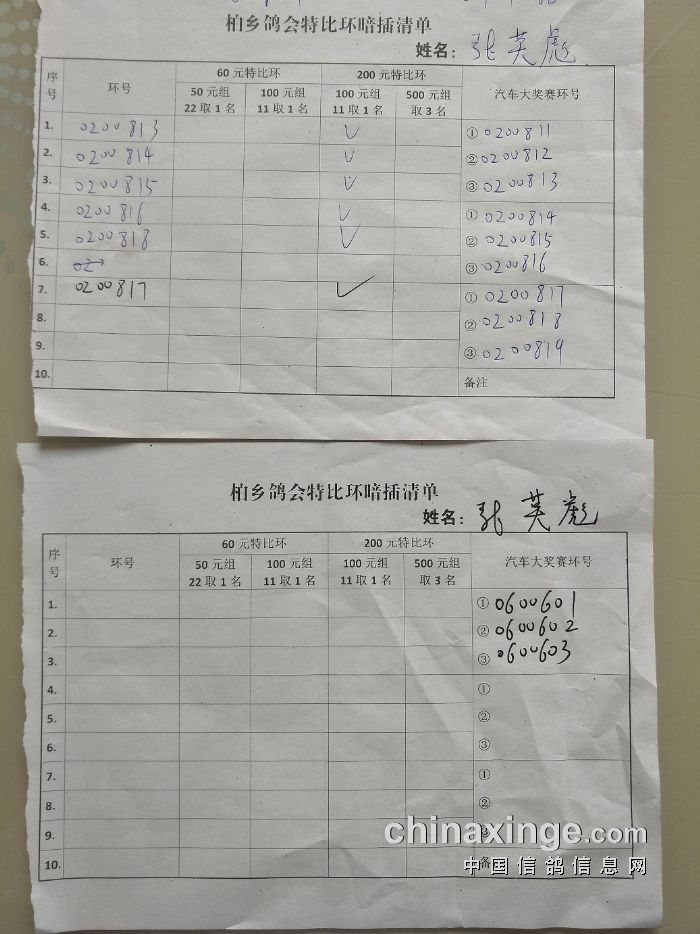 柏乡鸽会特比环暗插清单
姓名：张英彪
序号 环号 60元特比环 200元特比环 汽车大奖赛环号
50元组 22取1名 100元组 11取1名 100元组 11取1名 500元组 取3名
1. 0200813 ✓ ①0200811
2. 0200814 ✓ ②0200812
3. 0200815 ✓ ③0200813
4. 0200816 ✓ ①0200814
5. 0200818 ✓ ②0200815
6. 02 ③0200816
7. 0200817 ✓ ①0200817
8. ②0200818
9. ③0200819
10. 备注
柏乡鸽会特比环暗插清单
姓名：张英彪
序号 环号 60元特比环 200元特比环 汽车大奖赛环号
50元组 22取1名 100元组 11取1名 100元组 11取1名 500元组 取3名
1. ①0600601
2. ②0600602
3. ③0600603
4. ①
5. ②
6. ③
7. ①
8. ②
9. ③
10. 备
chinaxinge.com
中国信鸽信息网